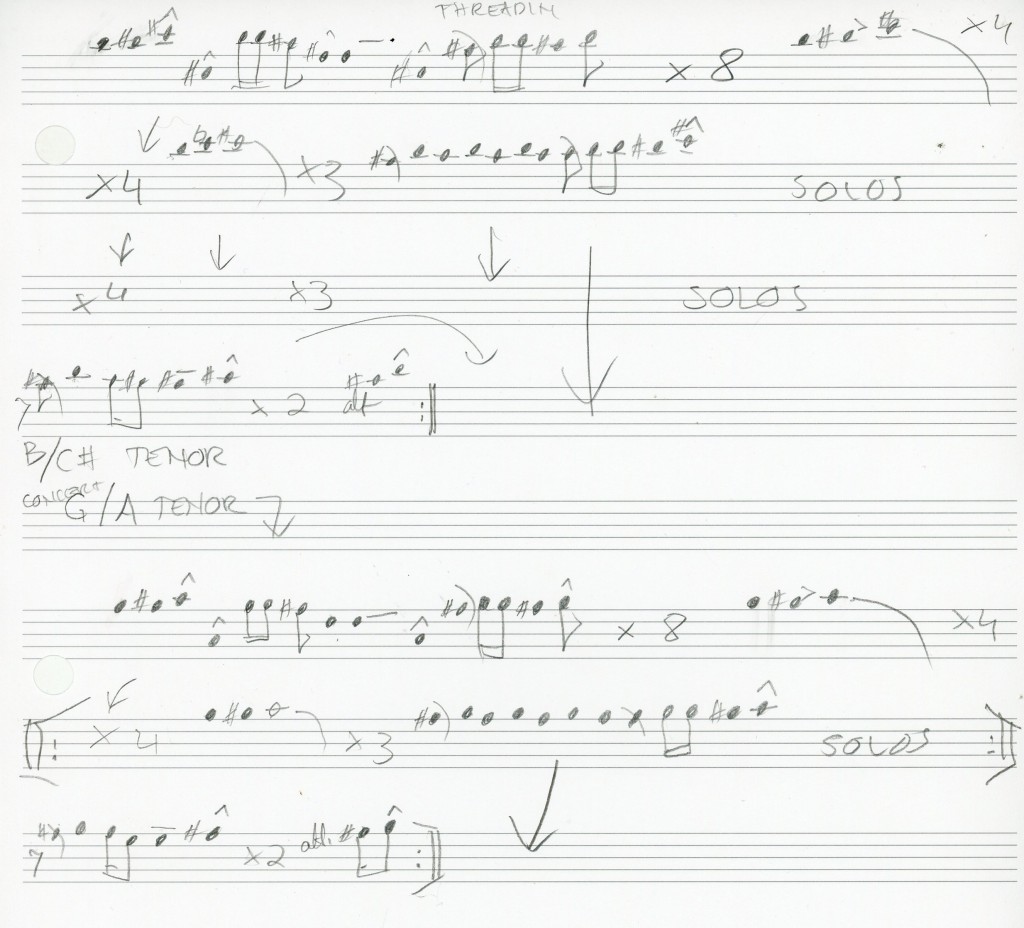 THREADIN
x 8 x4
x4 x3 SOLOS
x4 x3 SOLOS
x 2 alt
B/C# TENOR
CONCERT G/A TENOR
x 8 x4
x 4 x3 SOLOS
x2 alt.